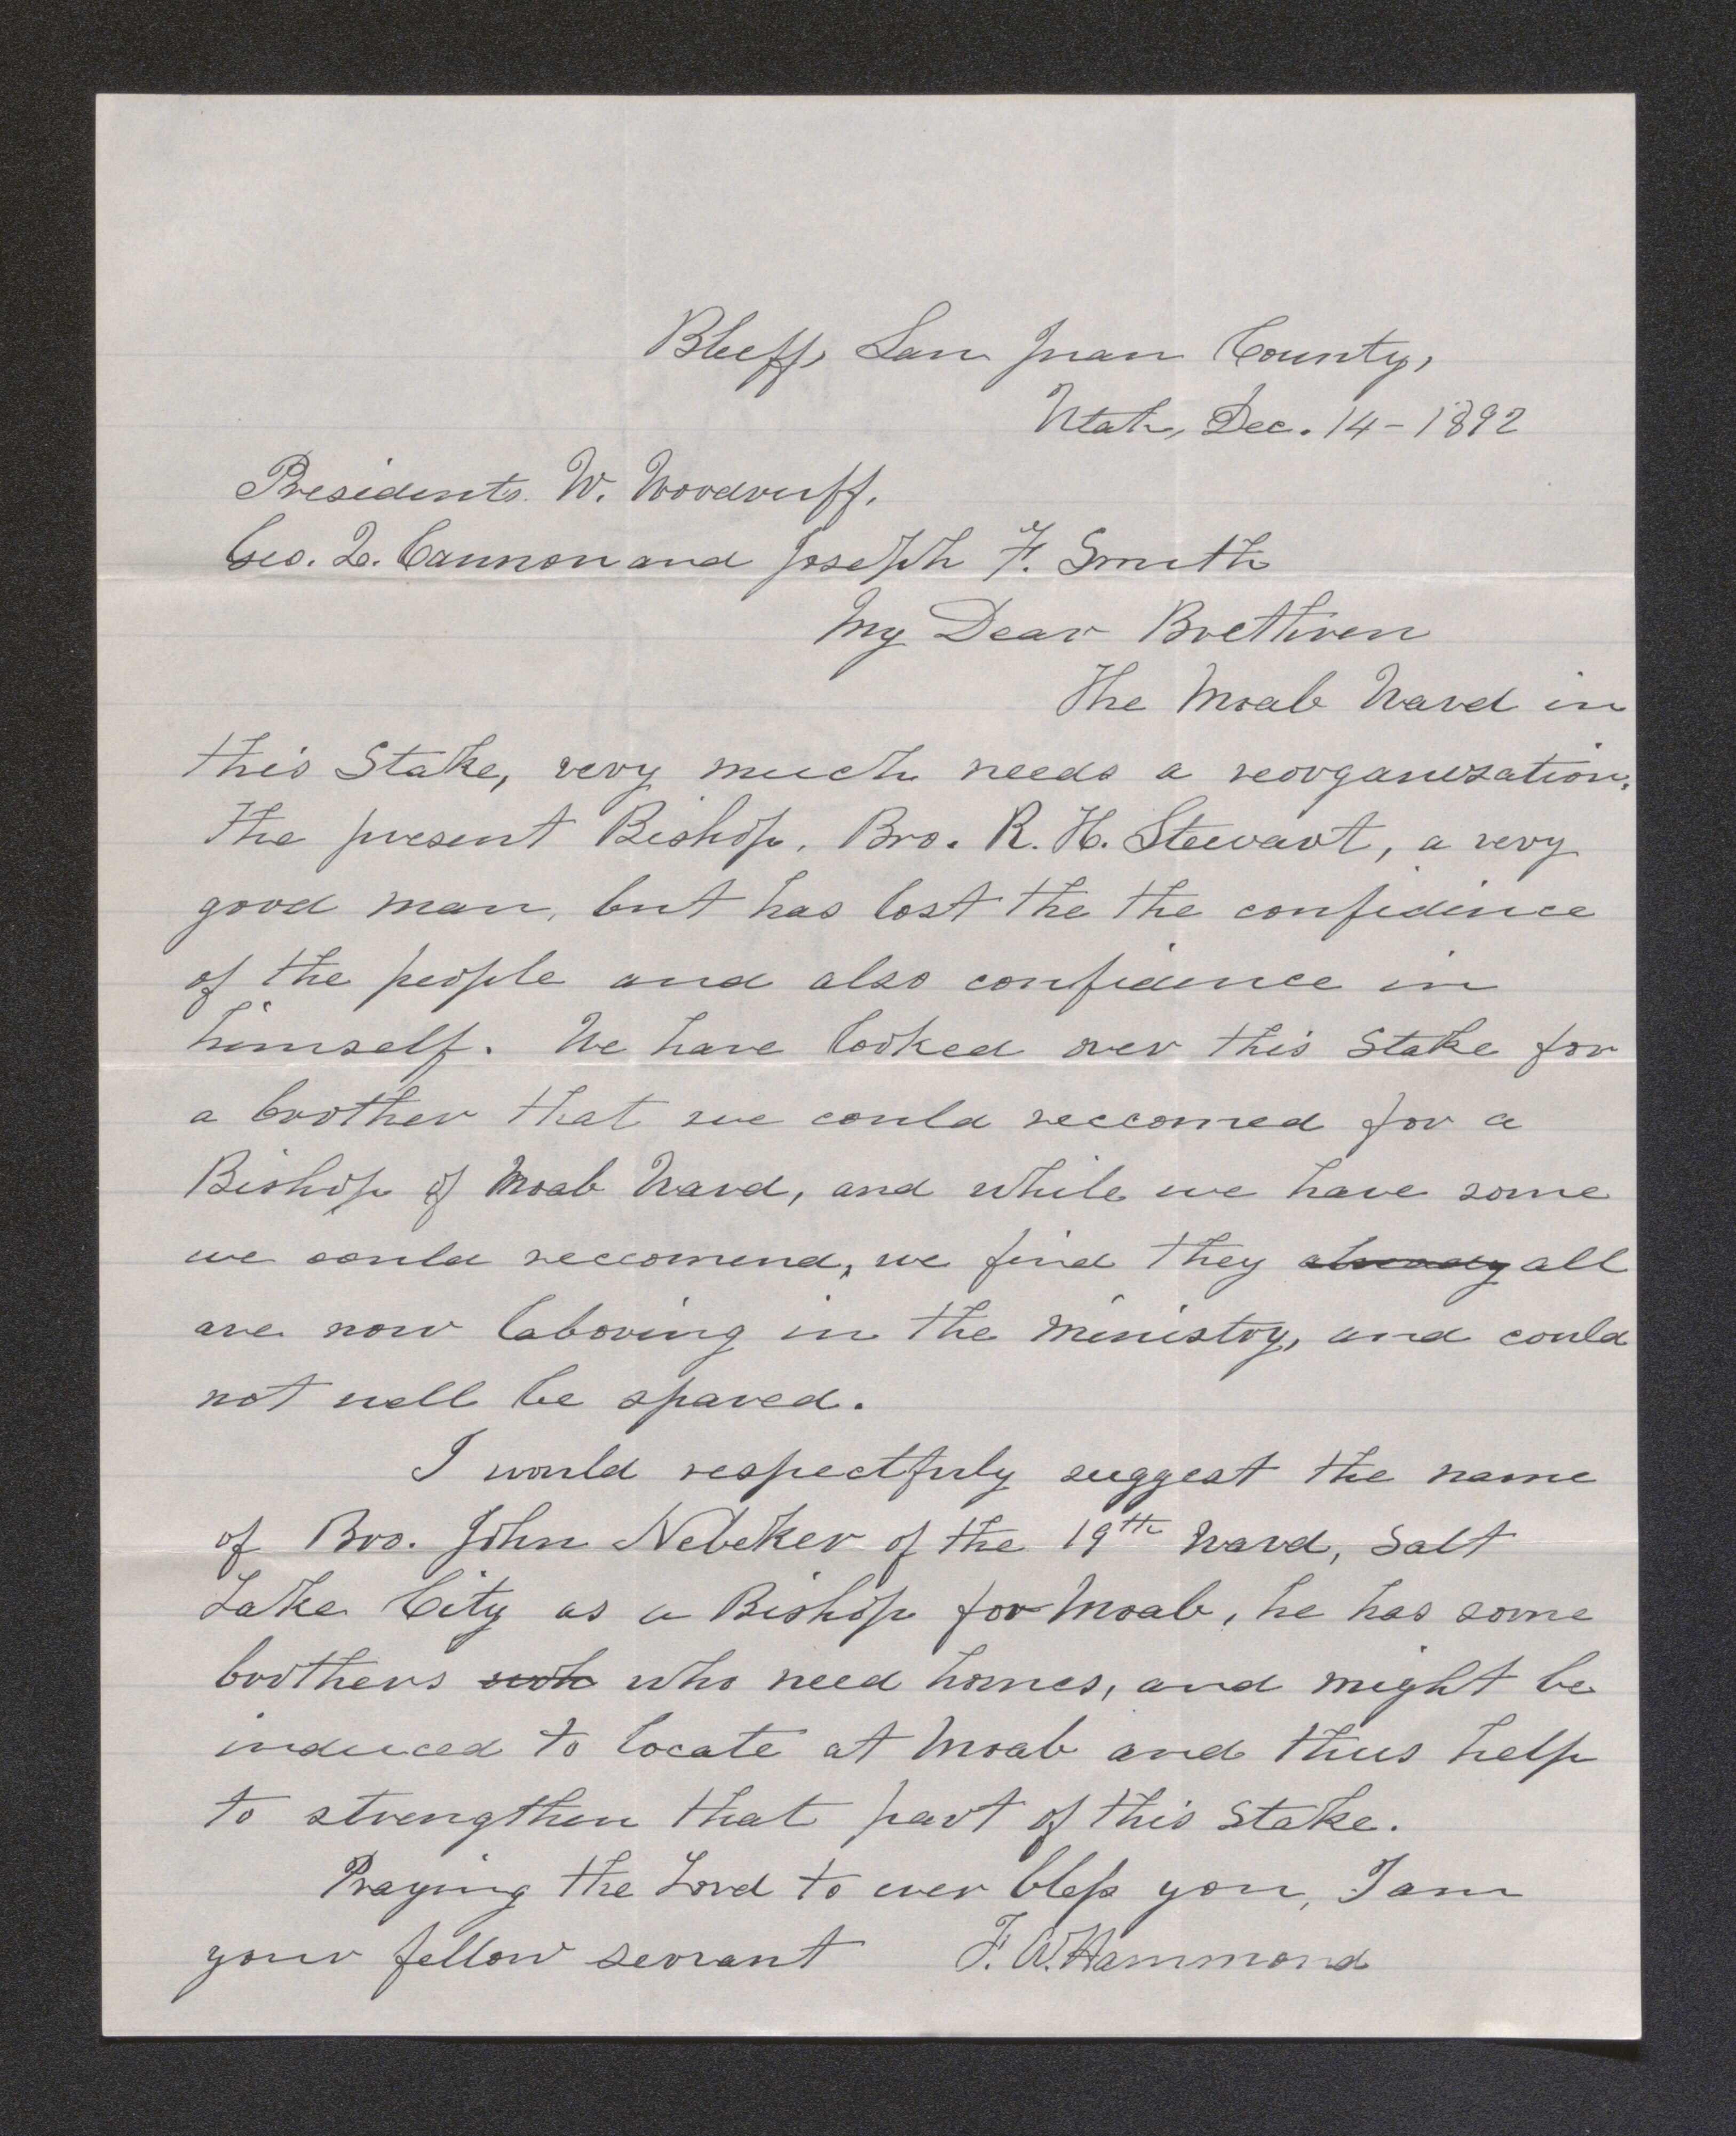 Bluff, San Juan County,
Utah, Dec. 14-1892
Presidents W. Woodruff,
Geo. Q. Cannon and Joseph F. Smith
My Dear Brethren
The Moab Ward in
this Stake, very much needs a reorganization.
The present Bishop, Bro. R. H. Stewart, a very
good man, but has lost the the confidence
of the people and also confidence in
himself. We have looked over this Stake for
a brother that we could reccomed for a
Bishop of Moab Ward, and while we have some
we could reccomend, we find they already all
are now laboring in the ministry, and could
not well be spared.
I would respectfuly suggest the name
of Bro. John Nebeker of the 19th Ward, Salt
Lake City as a Bishop for Moab, he has some
brothers who need homes, and might be
induced to locate at Moab and thus help
to strengthen that part of this Stake.
Praying the Lord to ever bless you, I am
your fellow servant F. A. Hammond